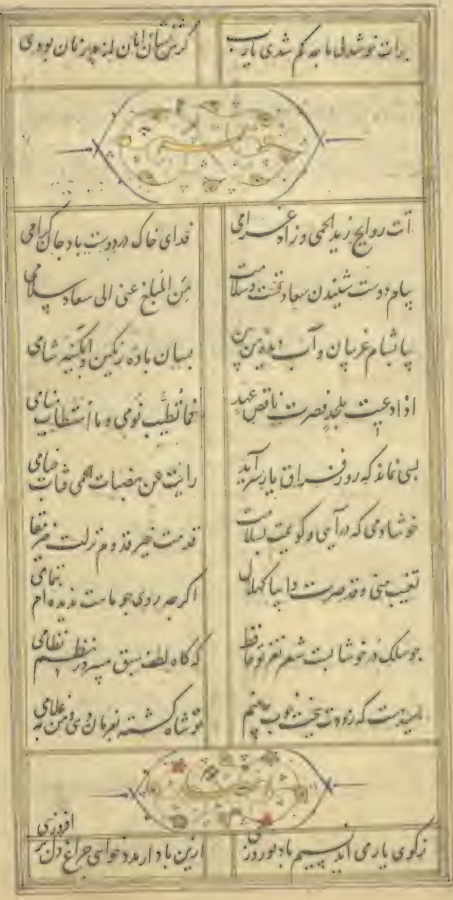 برات خوشدلی ما چه کم شدی یارب گرش نشان امان از بد زمان بودی
اتت روایح رند الحمی وزاد غرامی فدای خاک در دوست باد جان گرامی
پیام دوست شنیدن سعادتست و سلامت من المبلغ عنی الی سعاد سلامی
بیا بشام غریبان و آب دیده من بین بسان باده رنگین و آبگینه شامی
اذا دعیت فصرت ناقض عهد فما تطیب نومی و ما استطاب منامی
بسی نماند که روز فراق یار سرآید رایت عن هضبات الحمی قباب خیامی
خوشا دمی که درآیی و گویمت بسلامت قدمت خیر قدوم نزلت خیر مقام
منی وقد صرت دایبا کهلال اگرچه روی چو ماهت ندیده ام بتمامی
چو سلک در خوشابست شعر نغز تو حافظ که گاه لطف سبق میبرد ز نظم نظامی
امید هست که زودت ببخت خوب ببینم تو شاد گشته بفرمان دهی و من بغلامی
ز کوی یار می آید نسیم باد نوروزی ازین باد ار مدد خواهی چراغ دل برافروزی